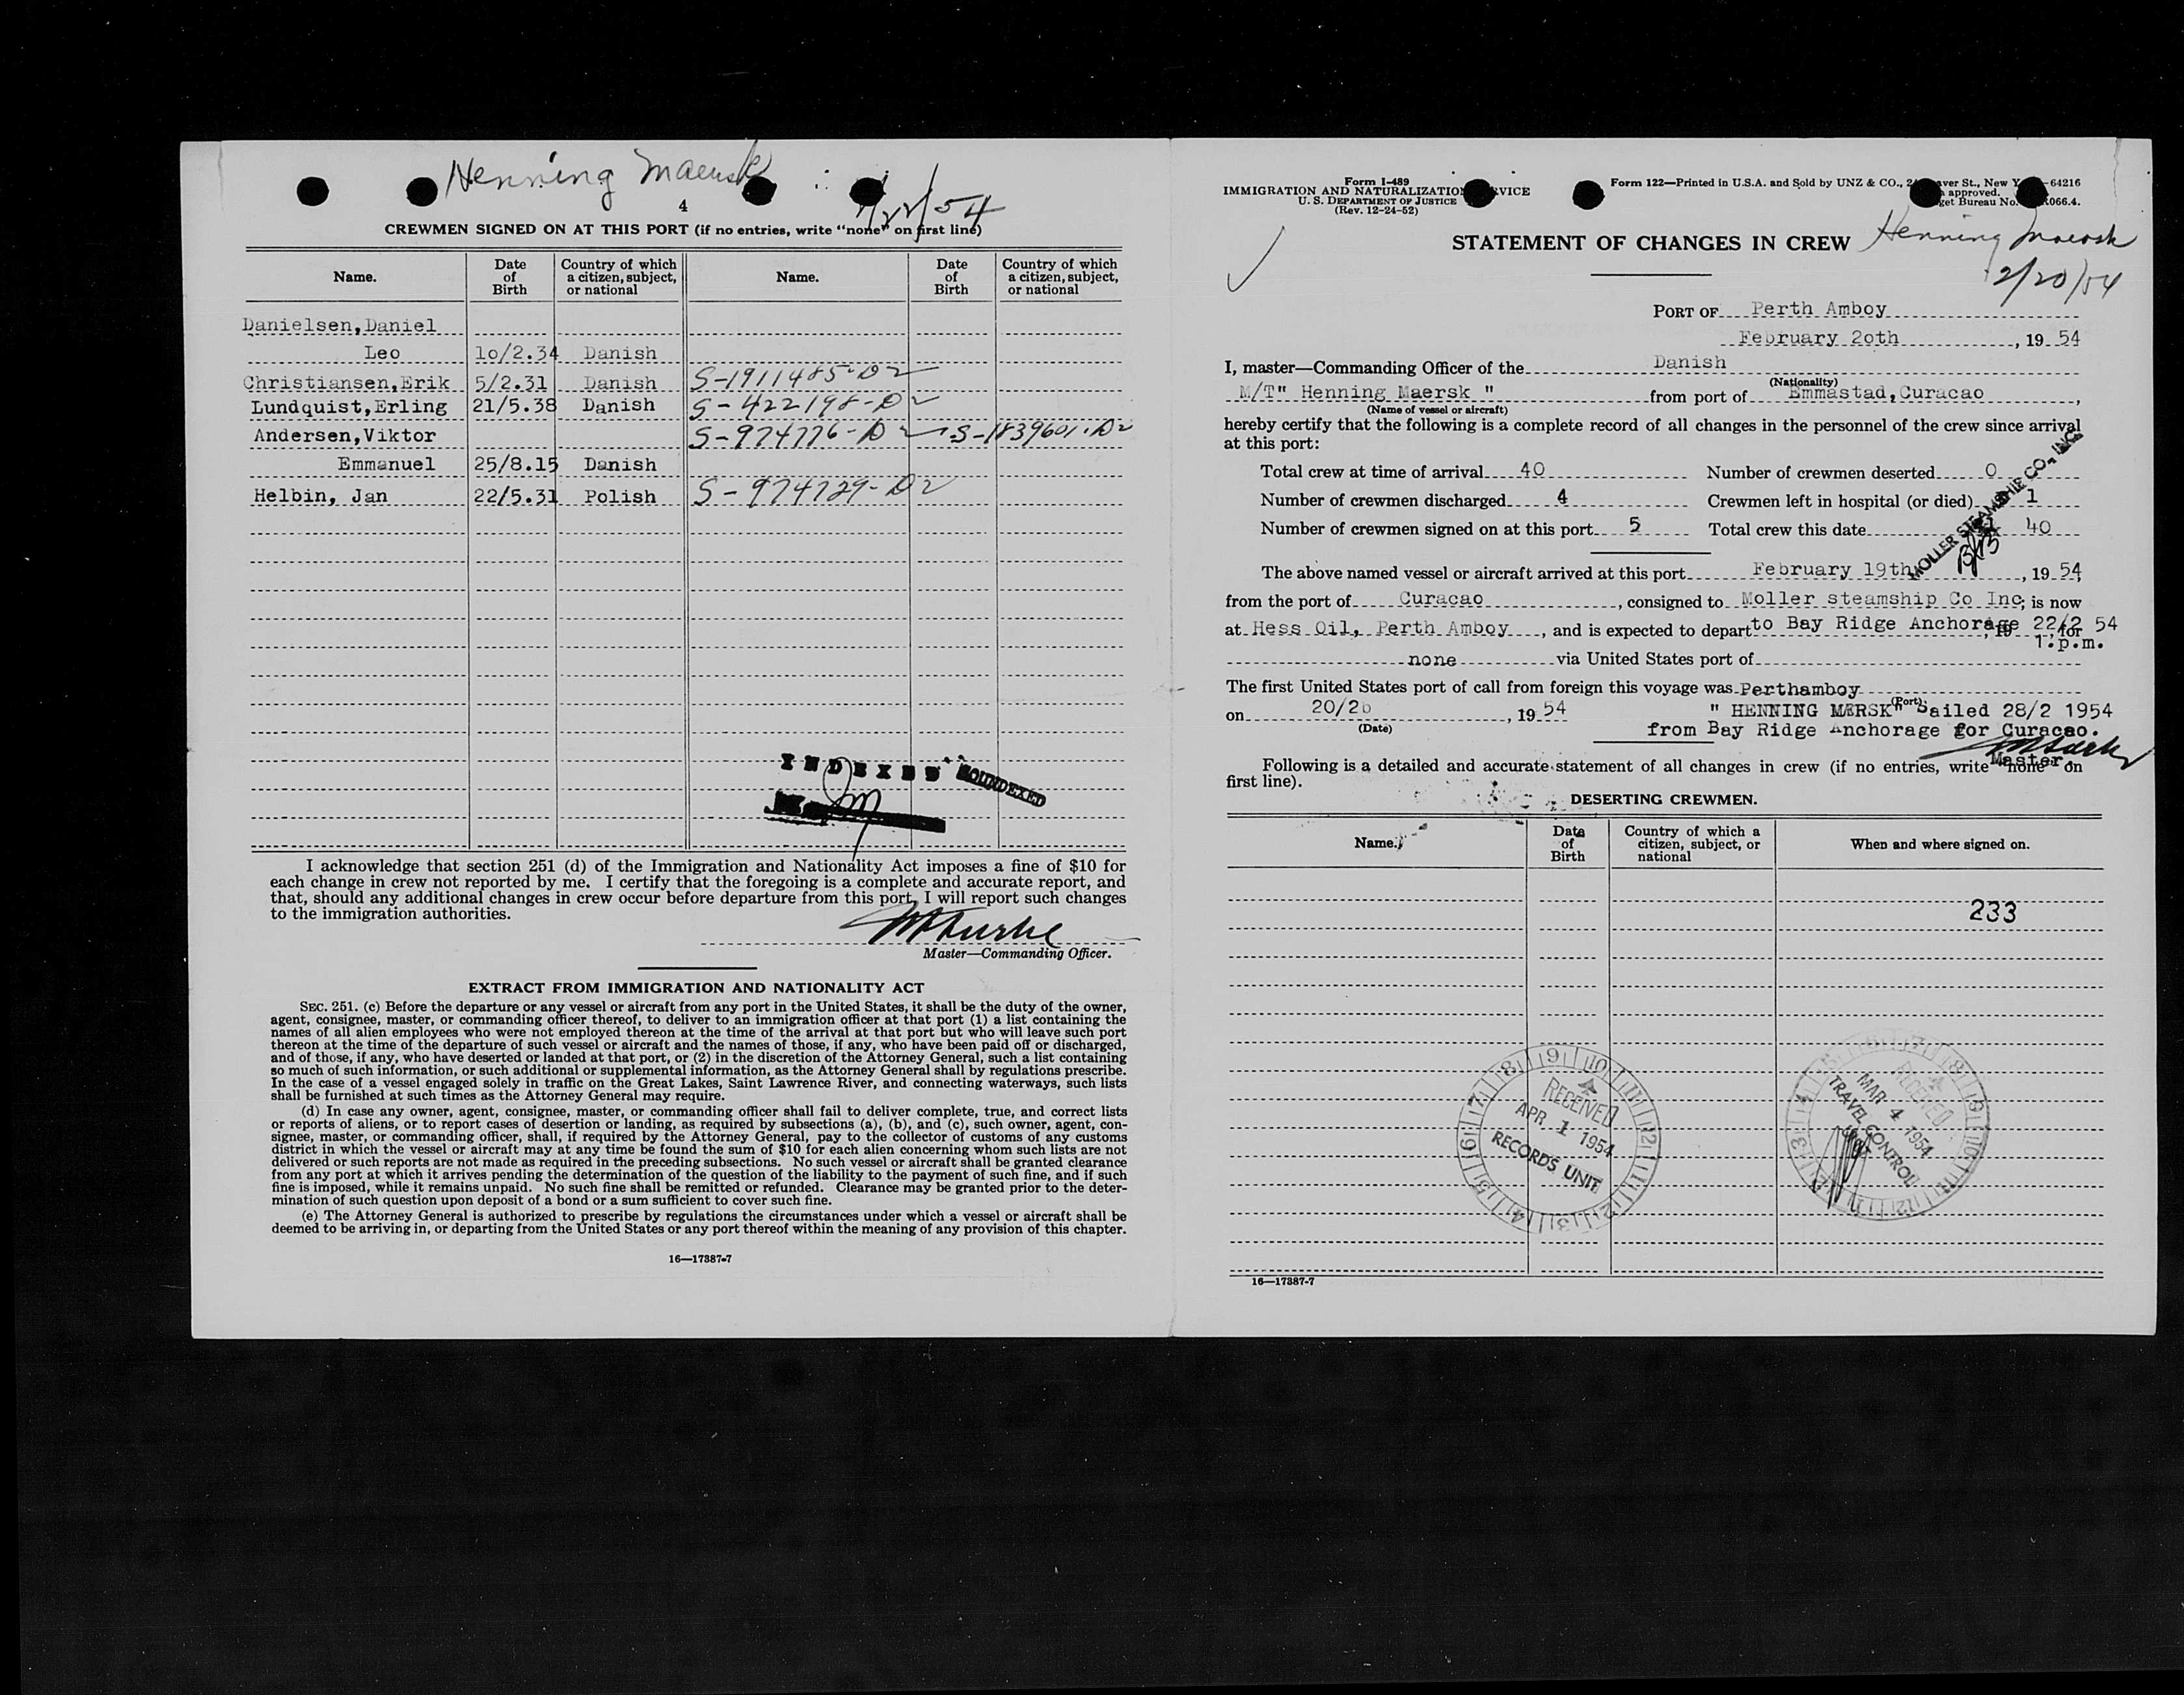 Henning Maersk
4
2/22/54
CREWMEN SIGNED ON AT THIS PORT (if no entries, write "none" on first line)
Name. Date of Birth Country of which a citizen, subject, or national Name. Date of Birth Country of which a citizen, subject, or national
Danielsen, Daniel
Leo 10/2.34 Danish
Christiansen, Erik 5/2.31 Danish S-1911485-D2
Lundquist, Erling 21/5.38 Danish S-422198-D2
Andersen, Viktor S-974776-D2 S-1839601-D2
Emmanuel 25/8.15 Danish
Helbin, Jan 22/5.31 Polish S-974729-D2
INDEXED SOUNDEXED
I acknowledge that section 251 (d) of the Immigration and Nationality Act imposes a fine of $10 for
each change in crew not reported by me. I certify that the foregoing is a complete and accurate report, and
that, should any additional changes in crew occur before departure from this port, I will report such changes
to the immigration authorities.
Master—Commanding Officer.
EXTRACT FROM IMMIGRATION AND NATIONALITY ACT
SEC. 251. (c) Before the departure or any vessel or aircraft from any port in the United States, it shall be the duty of the owner,
agent, consignee, master, or commanding officer thereof, to deliver to an immigration officer at that port (1) a list containing the
names of all alien employees who were not employed thereon at the time of the arrival at that port but who will leave such port
thereon at the time of the departure of such vessel or aircraft and the names of those, if any, who have been paid off or discharged,
and of those, if any, who have deserted or landed at that port, or (2) in the discretion of the Attorney General, such a list containing
so much of such information, or such additional or supplemental information, as the Attorney General shall by regulations prescribe.
In the case of a vessel engaged solely in traffic on the Great Lakes, Saint Lawrence River, and connecting waterways, such lists
shall be furnished at such times as the Attorney General may require.
(d) In case any owner, agent, consignee, master, or commanding officer shall fail to deliver complete, true, and correct lists
or reports of aliens, or to report cases of desertion or landing, as required by subsections (a), (b), and (c), such owner, agent, con-
signee, master, or commanding officer, shall, if required by the Attorney General, pay to the collector of customs of any customs
district in which the vessel or aircraft may at any time be found the sum of $10 for each alien concerning whom such lists are not
delivered or such reports are not made as required in the preceding subsections. No such vessel or aircraft shall be granted clearance
from any port at which it arrives pending the determination of the question of the liability to the payment of such fine, and if such
fine is imposed, while it remains unpaid. No such fine shall be remitted or refunded. Clearance may be granted prior to the deter-
mination of such question upon deposit of a bond or a sum sufficient to cover such fine.
(e) The Attorney General is authorized to prescribe by regulations the circumstances under which a vessel or aircraft shall be
deemed to be arriving in, or departing from the United States or any port thereof within the meaning of any provision of this chapter.
16—17387-7
Form I-489
IMMIGRATION AND NATURALIZATION SERVICE
U. S. DEPARTMENT OF JUSTICE
(Rev. 12-24-52)
Form 122—Printed in U.S.A. and Sold by UNZ & CO., 64216
approved.
get Bureau No. 066.4.
STATEMENT OF CHANGES IN CREW
Henning Maersk
2/20/54
PORT OF Perth Amboy
February 20th, 19 54
I, master—Commanding Officer of the Danish
(Nationality)
M/T" Henning Maersk " from port of Emmastad, Curacao,
(Name of vessel or aircraft)
hereby certify that the following is a complete record of all changes in the personnel of the crew since arrival
at this port:
Total crew at time of arrival 40 Number of crewmen deserted 0
Number of crewmen discharged 4 Crewmen left in hospital (or died) 1
Number of crewmen signed on at this port 5 Total crew this date 40
MOLLER STEAMSHIP CO., INC.
The above named vessel or aircraft arrived at this port February 19th, 19 54
from the port of Curacao, consigned to Moller steamship Co Inc; is now
at Hess Oil, Perth Amboy, and is expected to depart to Bay Ridge Anchorage 22/2 54, 19 for
1.p.m.
none via United States port of
The first United States port of call from foreign this voyage was Perthamboy
(Port)
on 20/2, 19 54
(Date)
" HENNING MÆRSK" Sailed 28/2 1954
from Bay Ridge Anchorage for Curacao.
Master
Following is a detailed and accurate statement of all changes in crew (if no entries, write "none" on
first line).
DESERTING CREWMEN.
Name. Date of Birth Country of which a citizen, subject, or national When and where signed on.
233
RECEIVED
APR 1 1954
RECORDS UNIT
RECEIVED
MAR 4 1954
TRAVEL CONTROL
16—17387-7